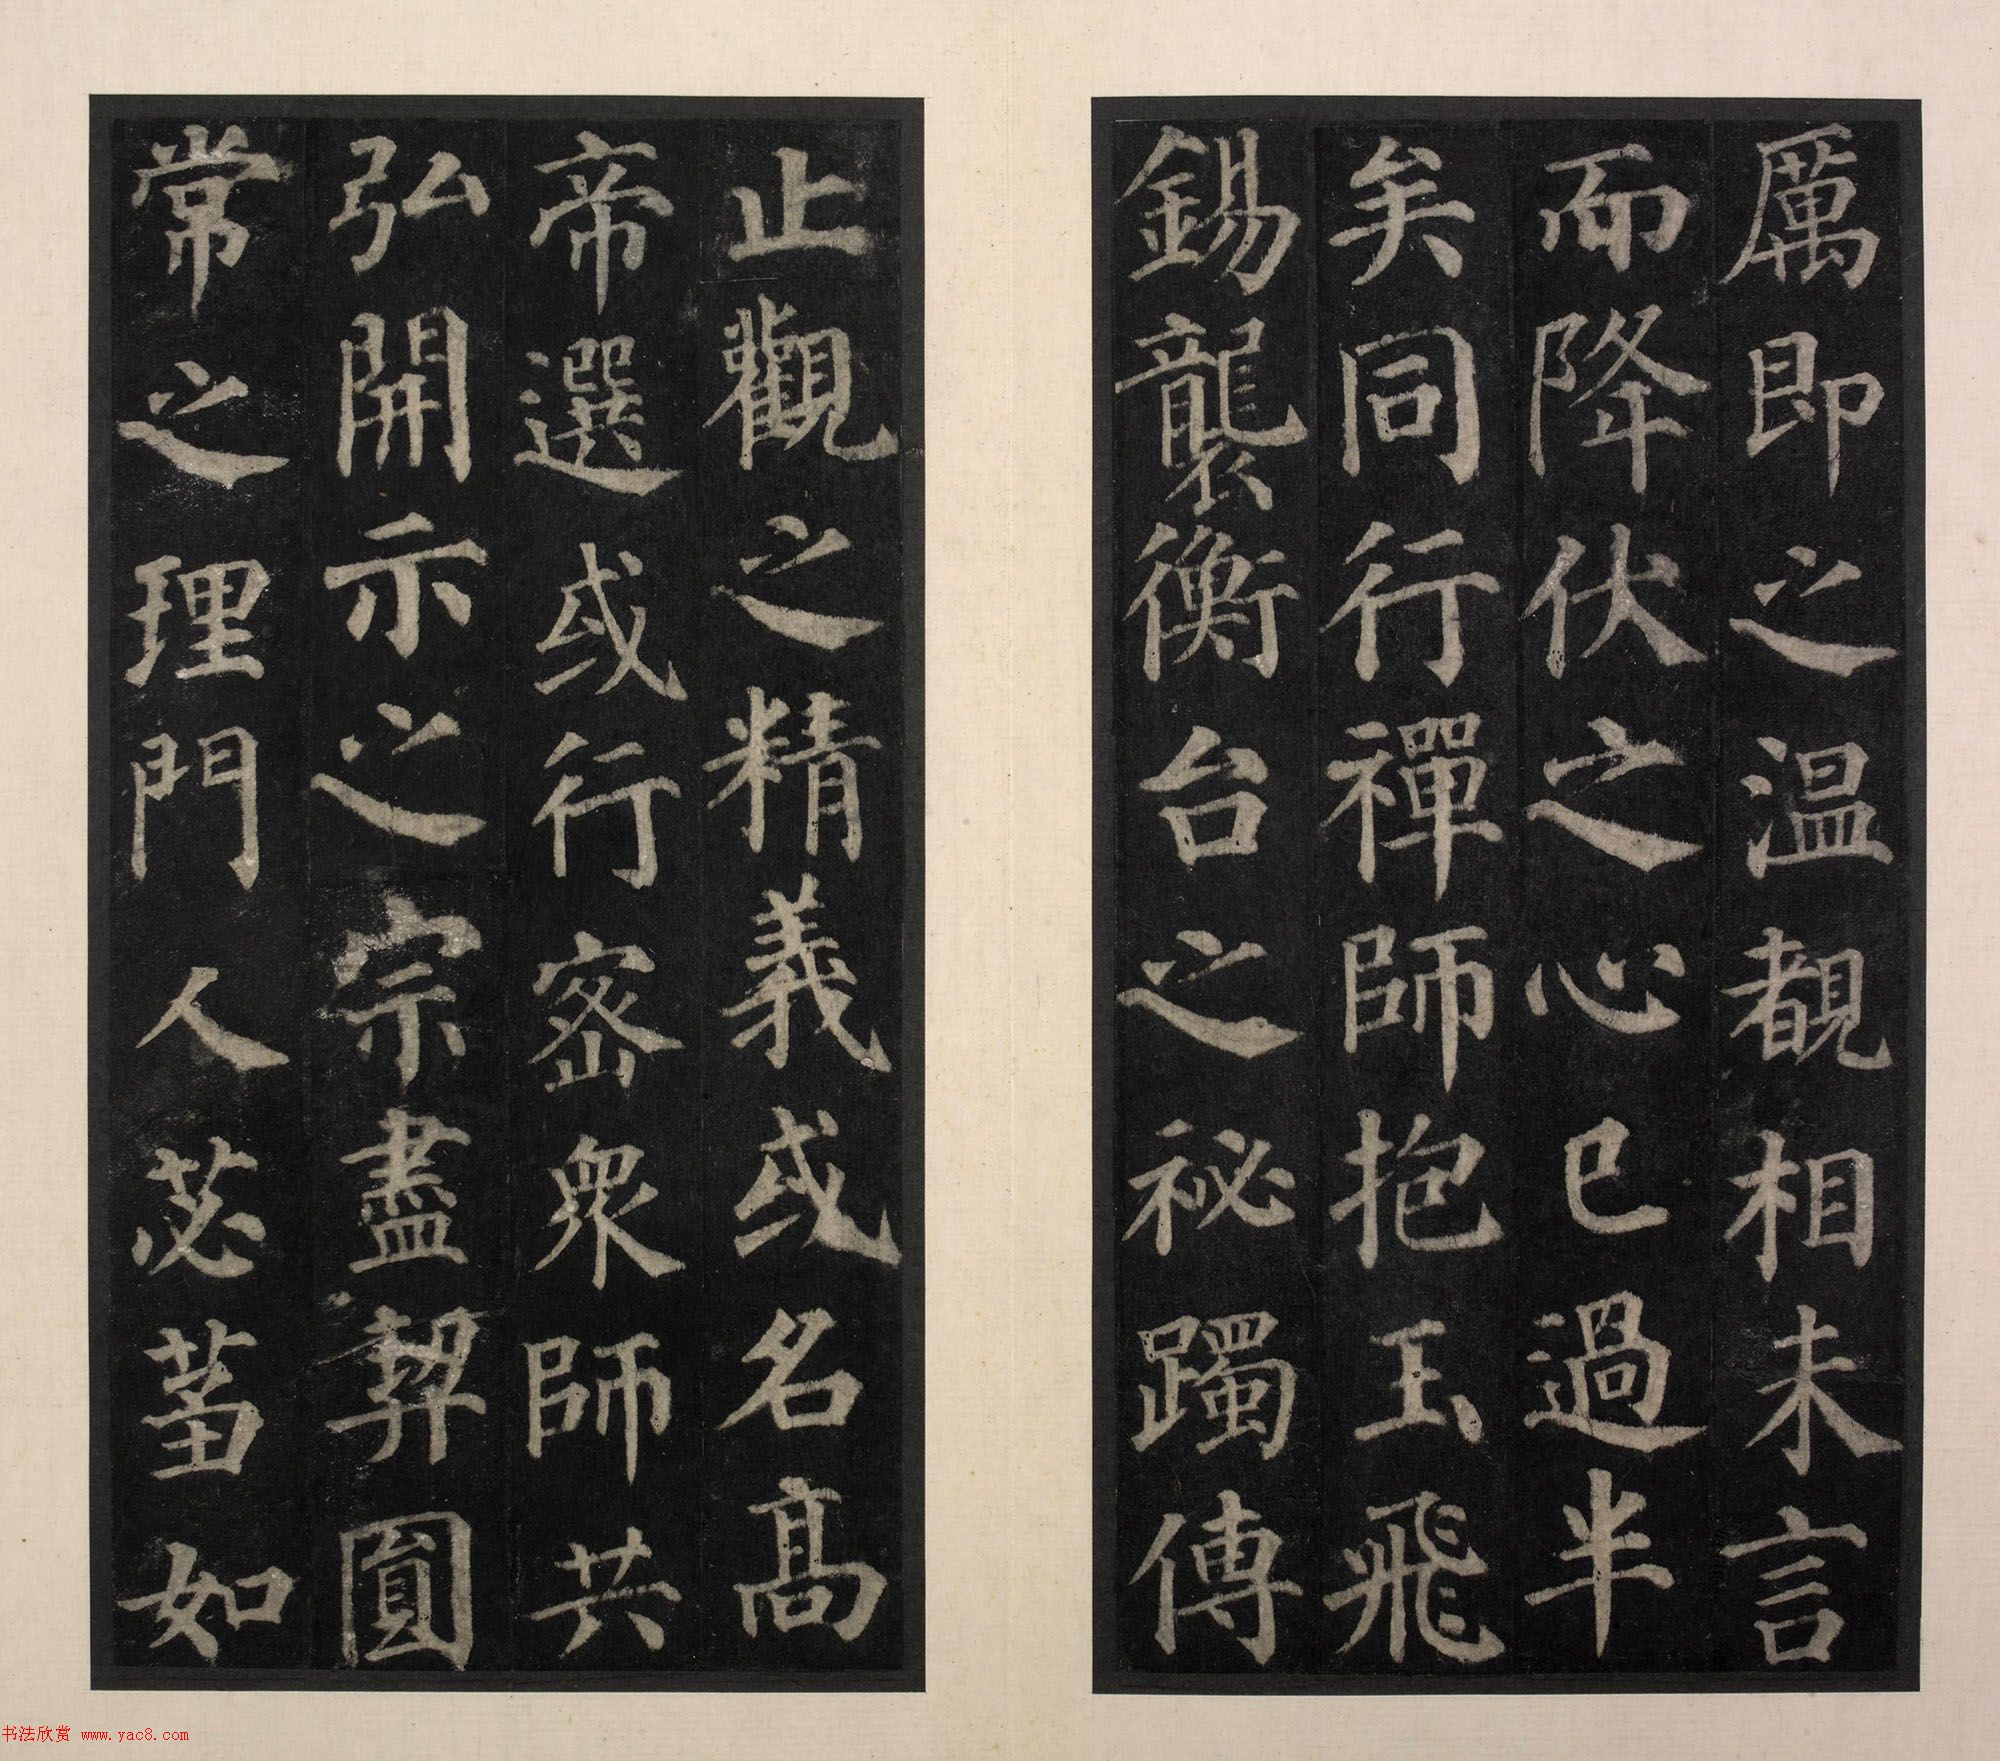 厲即之温覩相未言
而降伏之心已過半
矣同行禪師抱玉飛
錫襲衡台之祕躅傳
止觀之精義或名高
帝選或行密衆師共
弘開示之宗盡契圓
常之理門人苾蒭如
书法欣赏 www.yac8.com